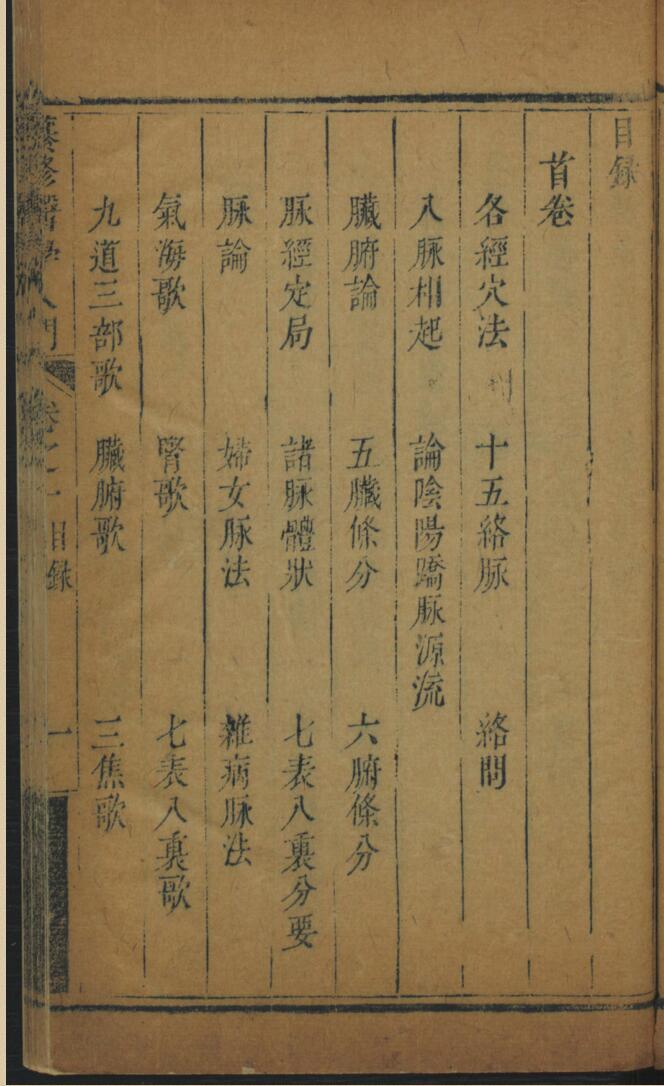 目録
首卷
各經穴法 十五絡脉 絡問
八脉相起 論陰陽蹻脉源流
臟腑論 五臟條分 六腑條分
脉經定局 諸脉體狀 七表八裏分要
脉論 婦女脉法 雜病脉法
氣海歌 腎歌 七表八裏歌
九道三部歌 臟腑歌 三焦歌
纂修醫學入門 卷之一 目録 一